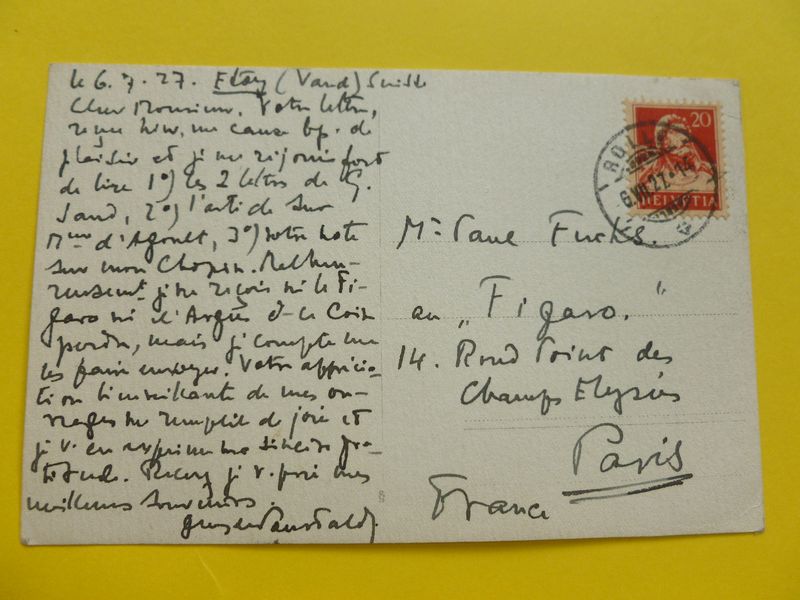 le 6.7.27. Etoy (Vaud) Suisse
Cher Monsieur, Votre lettre,
reçue hier, me cause bp. de
plaisir et je me réjouis fort
de lire 1º) les 2 lettres de G.
Sand, 2º) l'article sur
Mme d'Agoult, 3º) votre note
sur mon Chopin. Malheu-
reusemt. je ne reçois ni le Fi-
garo ni
perdu, mais je compte me
les faire envoyer. Votre apprécia-
tion bienveillante de mes ou-
vrages me remplit de joie et
je v. en exprime ma sincère gra-
titude. Recevez je v. prie mes
meilleurs souvenirs.
Mr Paul Fuchs.
au „Figaro."
14. Rond Point des
Champs Elysées
Paris
France
20
HELVETIA
ROLLE
6.VII.27.-14